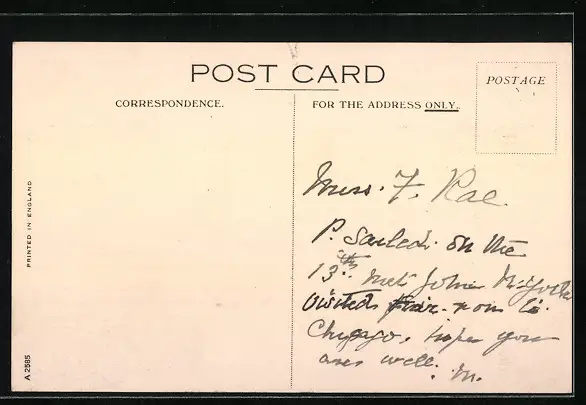 POST CARD
CORRESPONDENCE.
FOR THE ADDRESS ONLY.
POSTAGE
PRINTED IN ENGLAND
A 2585
Miss. F. Rae.
P. Sailed. on the
13th. met John N. York
visited Fair. + on to
Chicago, hope you
are well. M.